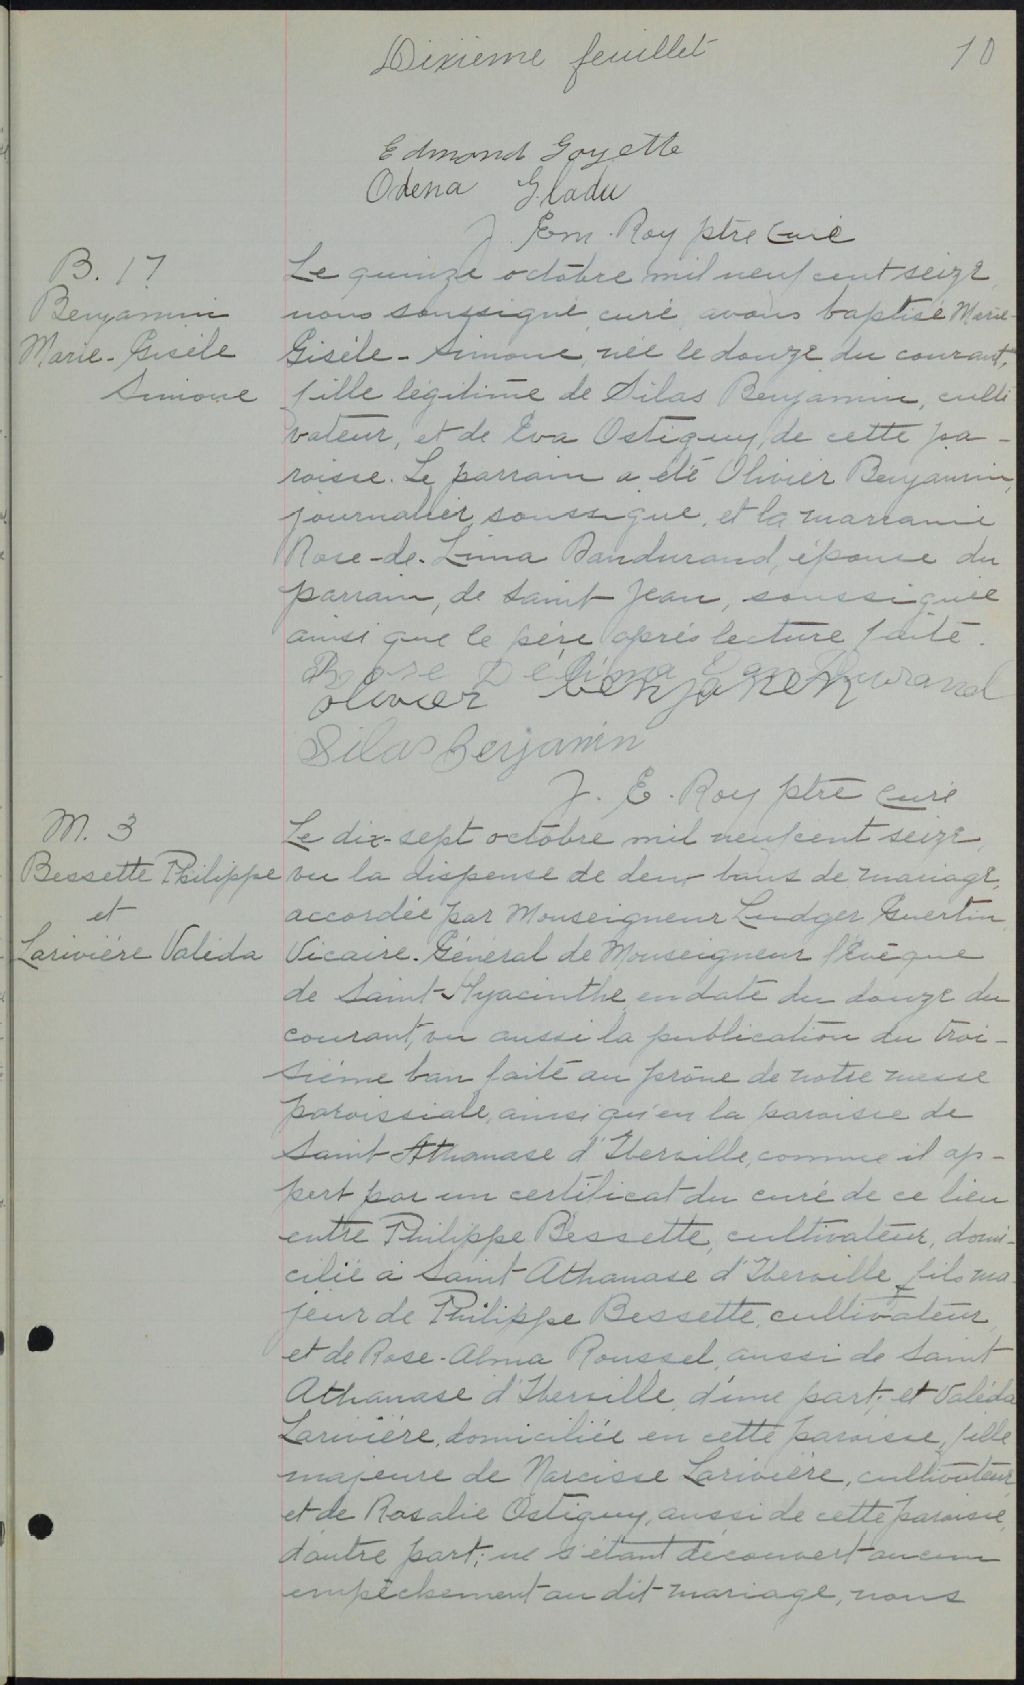 Dixième feuillet 10
Edmond Goyette
Odena Gladu
J. Em. Roy ptre curé
B. 17
Benjamin
Marie-Gisèle
Simone
Le quinze octobre mil neuf cent seize,
nous soussigné, curé, avons baptisé Marie-
Gisèle-Simone, née le douze du courant,
fille légitime de Silas Benjamin, culti
vateur, et de Eva Ostiguy, de cette pa-
roisse. Le parrain a été Olivier Benjamin,
journalier, soussigné, et la marraine
Rose-de-Lima Dandurand, épouse du
parrain, de Saint Jean, soussignée
ainsi que le père, après lecture faite.
Rose Delima Dandurand
olivier benjamen
Silas Benjamin
J. E. Roy ptre curé
M. 3
Bessette Philippe
et
Larivière Valéda
Le dix-sept octobre mil neuf cent seize,
vu la dispense de deux bans de mariage,
accordée par Monseigneur Ludger Guertin,
Vicaire-Général de Monseigneur l'Evêque
de Saint-Hyacinthe, en date du douze du
courant, vu aussi la publication du troi-
sième ban faite au prône de notre messe
paroissiale, ainsi qu'en la paroisse de
Saint Athanase d'Iberville, comme il ap-
pert par un certificat du curé de ce lieu
entre Philippe Bessette, cultivateur, domi-
cilié à Saint Athanase d'Iberville, fils ma-
jeur de Philippe Bessette, cultivateur,
et de Rose-Alma Roussel, aussi de Saint
Athanase d'Iberville, d'une part; et Valéda
Larivière, domiciliée en cette paroisse, fille
majeure de Narcisse Larivière, cultivateur,
et de Rosalie Ostiguy, aussi de cette paroisse,
d'autre part; ne s'étant découvert aucun
empêchement au dit mariage, nous